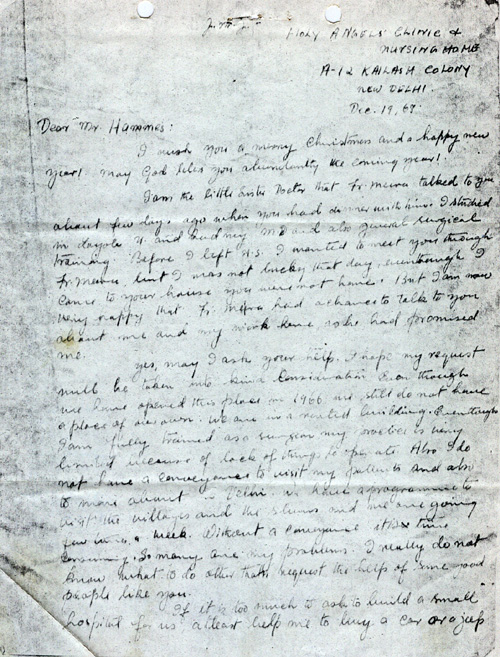 Holy Angels Clinic &
Nursing Home
A-12 Kailash Colony
New Delhi
Dec. 19, 67.
Dear Mr. Hammes:
I wish you a merry Christmas and a happy new
year! May God bless you abundantly the coming year!
I am the little sister Doctor that Fr. talked to you
about few days ago when you had dinner with him. I studied
in U. and had my M.D and also general surgical
training. Before I left U.S. I wanted to meet you through
Fr. but I was not lucky that day, eventhough I
came to your house you were not home. But I am now
very happy that Fr. had a chance to talk to you
about me and my work here as he had promised
me.
yes, may I ask your help. I hope my request
will be taken into kind consideration. Even though
we have opened this place in 1966 we still do not have
a place of our own. We are in a rented building. Eventhough
I am fully trained as a surgeon my practice is very
limited because of lack of things to operate. Also I do
not have a conveyance to visit my patients and also
to move about in Delhi. We have a programme to
visit the villages and the slums and we are going
few a week. Without a conveyance it is time
consuming. So many are my problems. I really do not
know what to do other than request the help of some good
people like you.
If it is too much to ask to build a small
hospital for us atleast help me to buy a car or a jeep